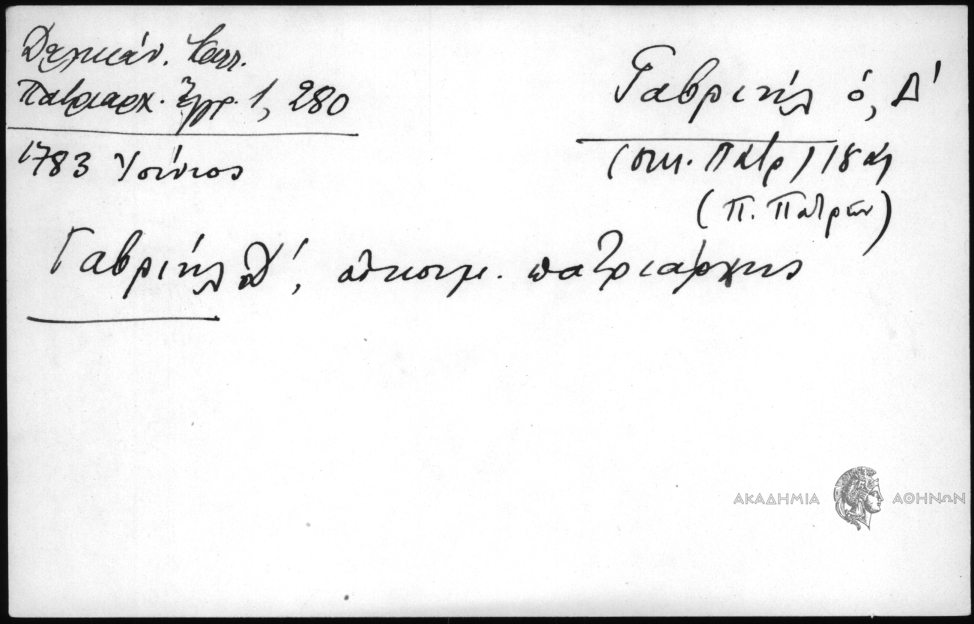 Δελικάν. Καλλ.
Πατριαρχ. Ἔγγρ. 1, 280
1783 Ἰούνιος
Γαβριήλ ὁ, Δ'
(οικ. Πατρ) 18 αι
(Π. Πατρών)
Γαβριήλ Δ', οἰκουμ. πατριάρχης
ΑΚΑΔΗΜΙΑ ΑΘΗΝΩΝ